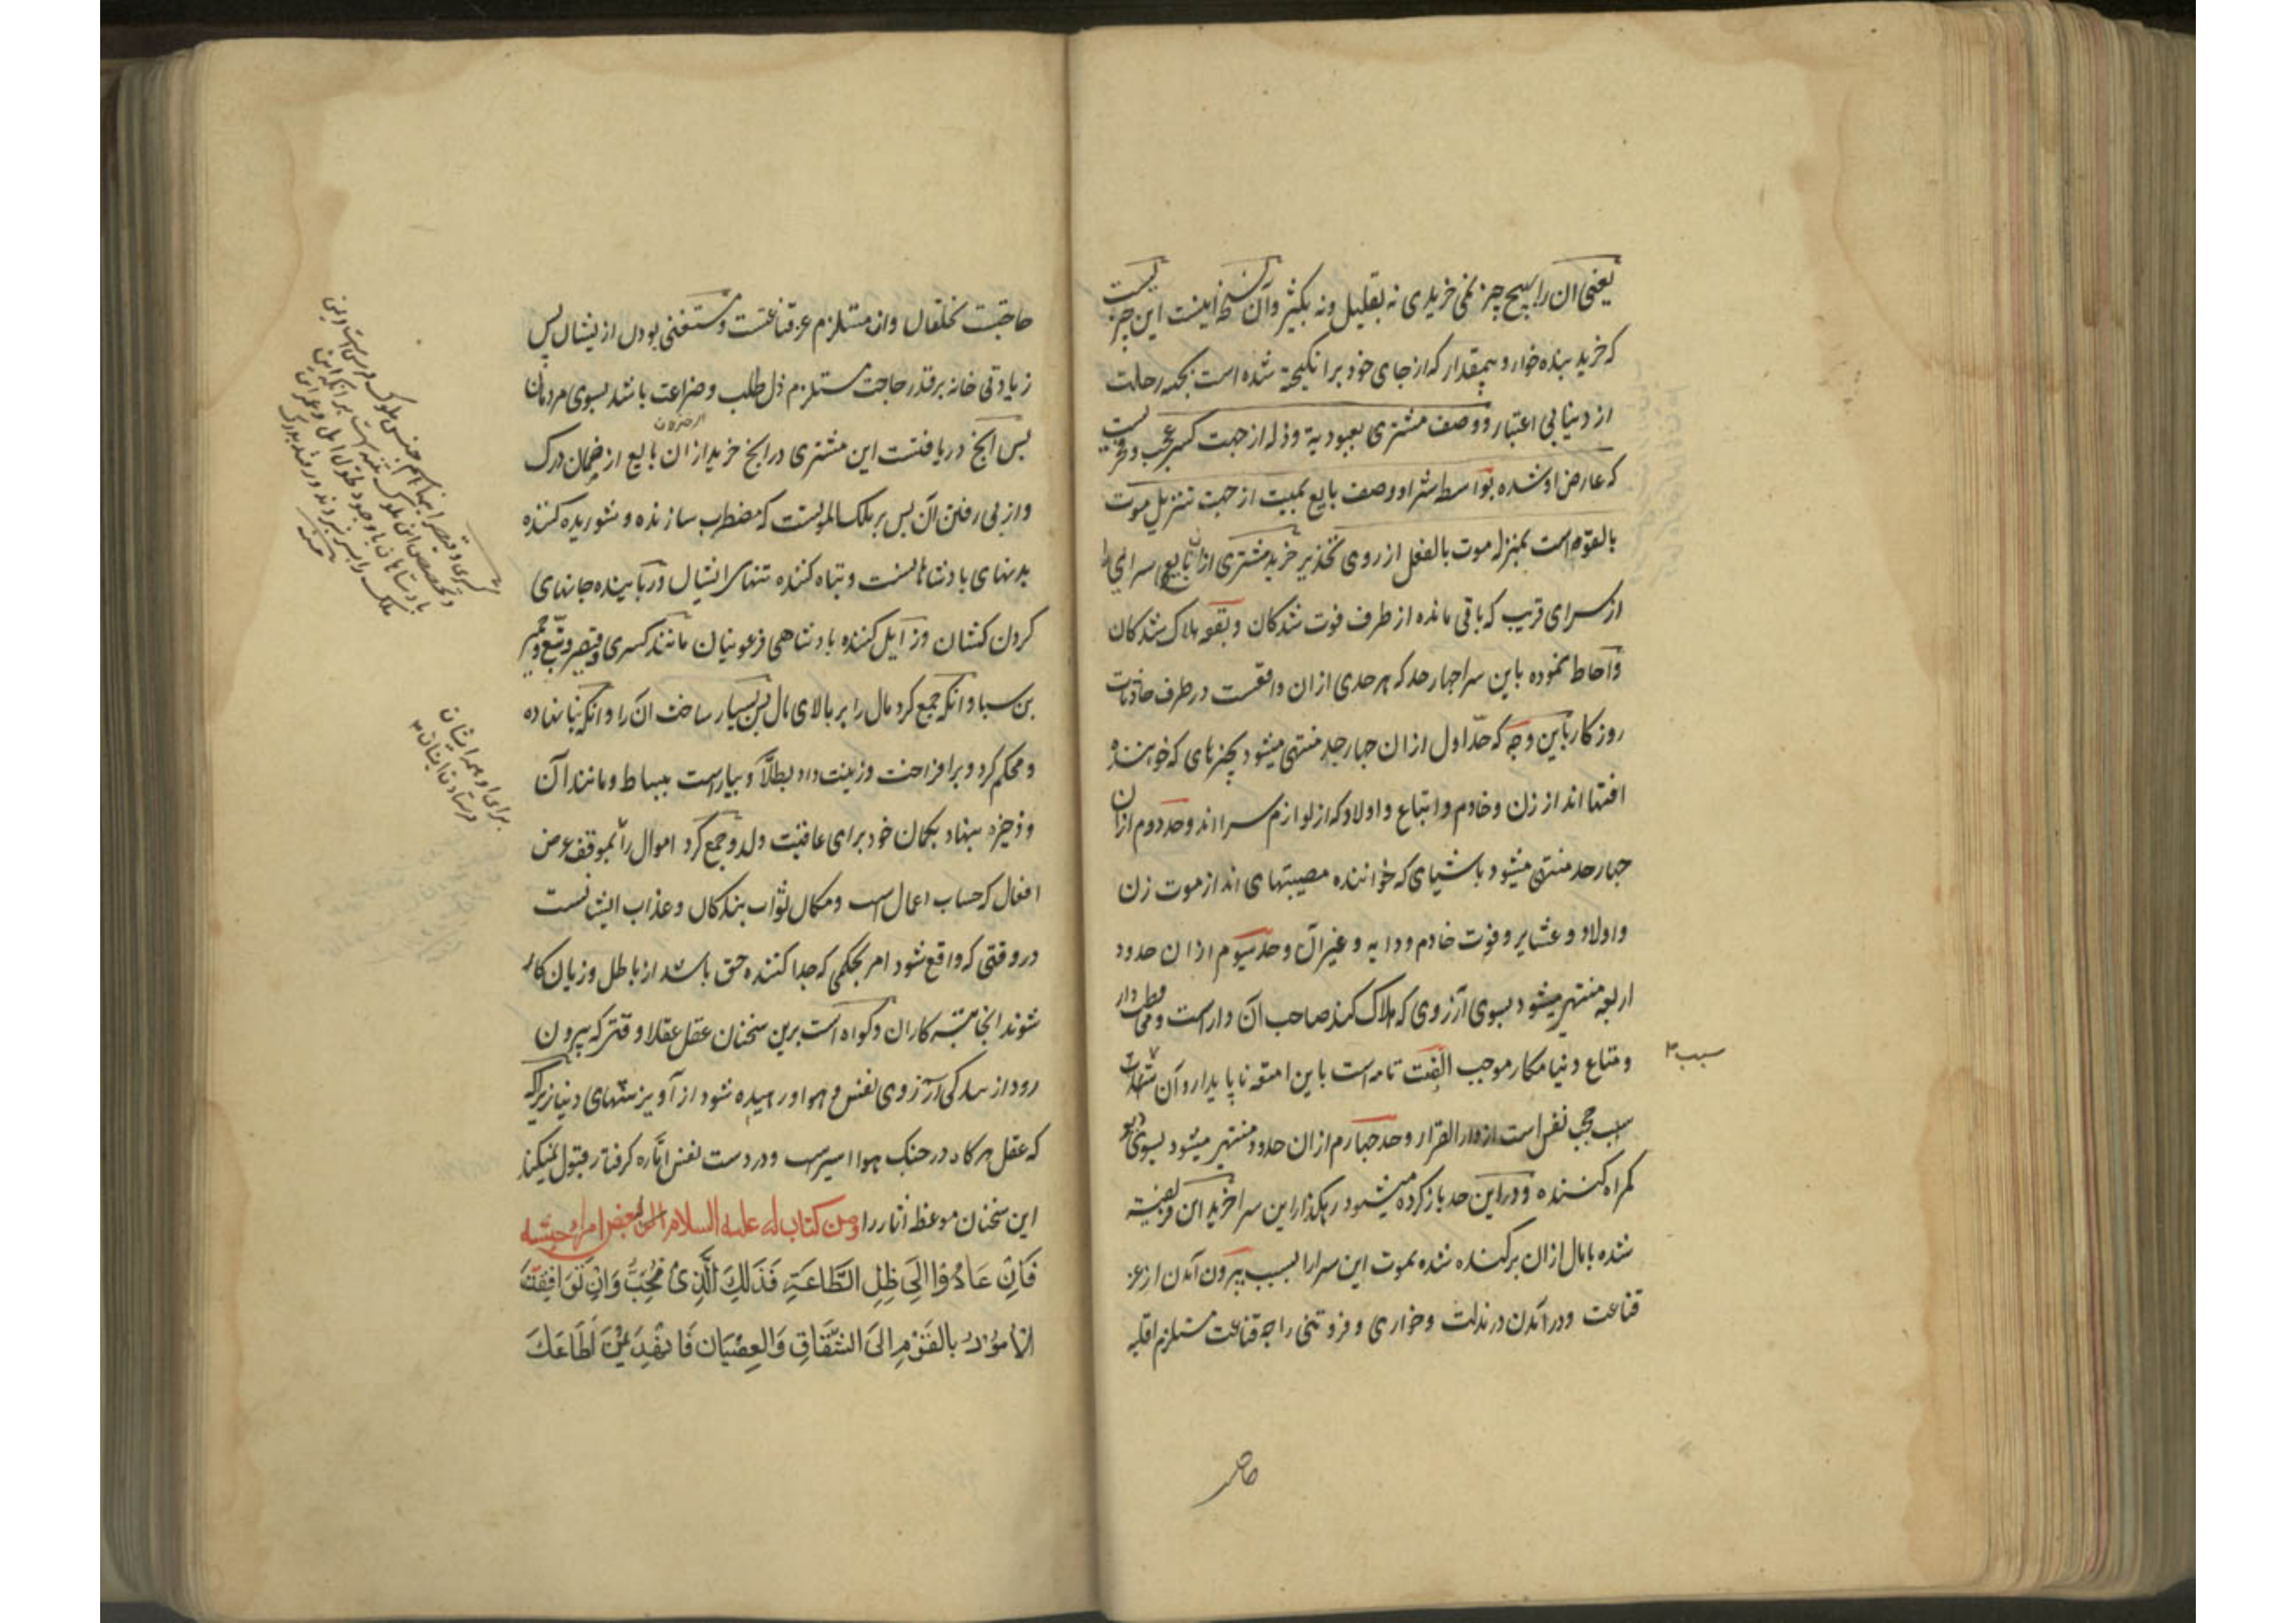 یعنی آن را بهیچ چیز نمی خریدی نه بقلیل و نه بکثیر و آن نسخه اینست این چیزیست
که خرید بنده خوار و بیمقدار که از جای خود برانکیخته شده است بجهة رحلت
از دنیا بی اعتبار و وصف مشتری بعبودیة و ذله از جهت کسر عجب و فخریست
که عارض او شده بواسطه شرا و وصف بایع بمیت از جهت تنزیل موت
بالقوه است بمنزله موت بالفعل از روی تحذیر خرید مشتری ازان بایع سرای را
از سرای فریب که باقی مانده از طرف فوت شدکان و بقعه هلاک شدکان
و احاطه نموده باین سرا چهار حد که هر حدی ازان واقعست در طرف حادثات
روزکار باین وجه که حد اول ازان چهار حد منتهی میشود بچیزهای که خواننده
افتها اند از زن و خادم و اتباع و اولاد که از لوازم سرا اند و حد دوم ازان
چهار حد منتهی میشود باشیای که خواننده مصیبتهای اند از موت زن
و اولاد و عشایر و فوت خادم و دایه و غیر آن و حد سیوم ازان حدود
اربعه منتهی میشود بسوی آرزوی که هلاک کند صاحب آن
و متاع دنیا مکار موجب الفت تامه است باین امتعه ناپایدار و آن
سبب حجب نفس است از دار القرار و حد چهارم ازان حدود منتهی میشود بسوی دیو
کمراه کننده و در این حد باز کرده میشود در یکذار این سرا خرید این فریفته
شده بامال ازان برکنده شده بموت این سرا را بسبب بیرون آمدن از عز
قناعت و در آمدن در مذلت و خواری و فروتنی را چه قناعت مستلزم اقلیه
سبب
حاجتست
حاجتست بخلقان و ان مستلزم عز قناعتست و مستغنی بودن از ایشان پس
زیادتی خانه بر قدر حاجت مستلزم ذل طلب و ضراعت باشد بسوی مردمان
پس انچ دریافتست این مشتری در انچ خرید ازان بایع از ضمان درک
و از پی رفتن آن پس بر ملک الموتست که مضطرب سازنده و شوریده کننده
بدنهای بادشاهانست و تباه کننده تنهای ایشان و ربایینده جانهای
کردن کشان و زایل کننده بادشاهی فرعونیان مانند کسری و قیصر و تبع و حمیر
بن سبا و انکه جمع کرد مال را بر بالای مال پس بسیار ساخت ان را و انکه بنا نهاده
و محکم کرد و برافراخت و زینت داد بطلا و بیاراست ببساط و مانند آن
و ذخیره بنهاد بکمان خود برای عاقبت ولد و جمع کرد اموال را بموقف عرض
افعال که حساب اعمال است و مکان ثواب بندکان و عذاب ایشانست
در وقتی که واقع شود امر بحکمی که جدا کننده حق باشد از باطل و زیان کار
شوند انجا تبه کاران و کواه است برین سخنان عقل عقلا وقتی که بیرون
رود از بندکی آرزوی نفس و هوا و رهیده شود از آویزشهای دنیا زیراکه
که عقل هرکاه در چنک هوا اسیرست و در دست نفس اماره کرفتار قبول نمیکند
این سخنان موعظه آثار را ومن کتاب له علیه السلام الی بعض امراء جیشه
فَاِنْ عَادُوْا اِلَی ظِلِ الطَّاعَةِ فَذَلِكَ الَّذِیْ نُحِبُّ وَاِنْ تَوَافَقَتْ
الْاُمُوْرُ بِالْقَوْمِ اِلَی الشِّقَاقِ وَالْعِصْيَانِ فَانْهَدْ بِمَنْ اَطَاعَكَ